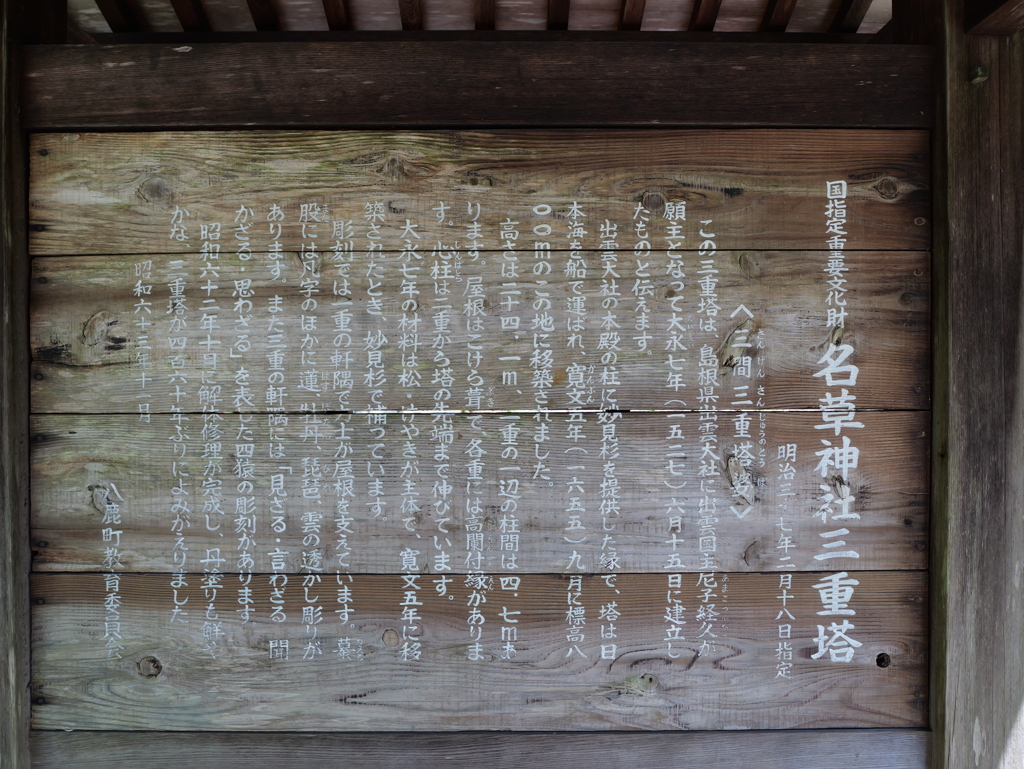 国指定重要文化財　名草神社三重塔
明治三十七年二月十八日指定
〈三間三重塔婆〉
この三重塔は、島根県出雲大社に出雲国主尼子経久が
願主となって大永七年（一五二七）六月十五日に建立し
たものと伝えます。
出雲大社の本殿の柱に妙見杉を提供した縁で、塔は日
本海を船で運ばれ、寛文五年（一六五五）九月に標高八
〇〇mのこの地に移築されました。
高さは二四・一m、一重の一辺の柱間は四・七mあ
ります。屋根はこけら葺で各重には高欄付縁がありま
す。心柱は三重から塔の先端まで伸びています。
大永七年の材料は松・けやきが主体で、寛文五年に移
築されたとき、妙見杉で補っています。
彫刻では一重の軒隅で力士が屋根を支えています。蟇
股には凡字のほかに蓮、牡丹、琵琶、雲の透かし彫りが
あります。また三重の軒隅には「見ざる・言わざる・聞
かざる・思わざる」を表した四猿の彫刻があります
昭和六十二年十月に解体修理が完成し、丹塗りも鮮や
かな、三重塔が四百六十年ぶりによみがえりました
昭和六十三年十一月
八鹿町教育委員会